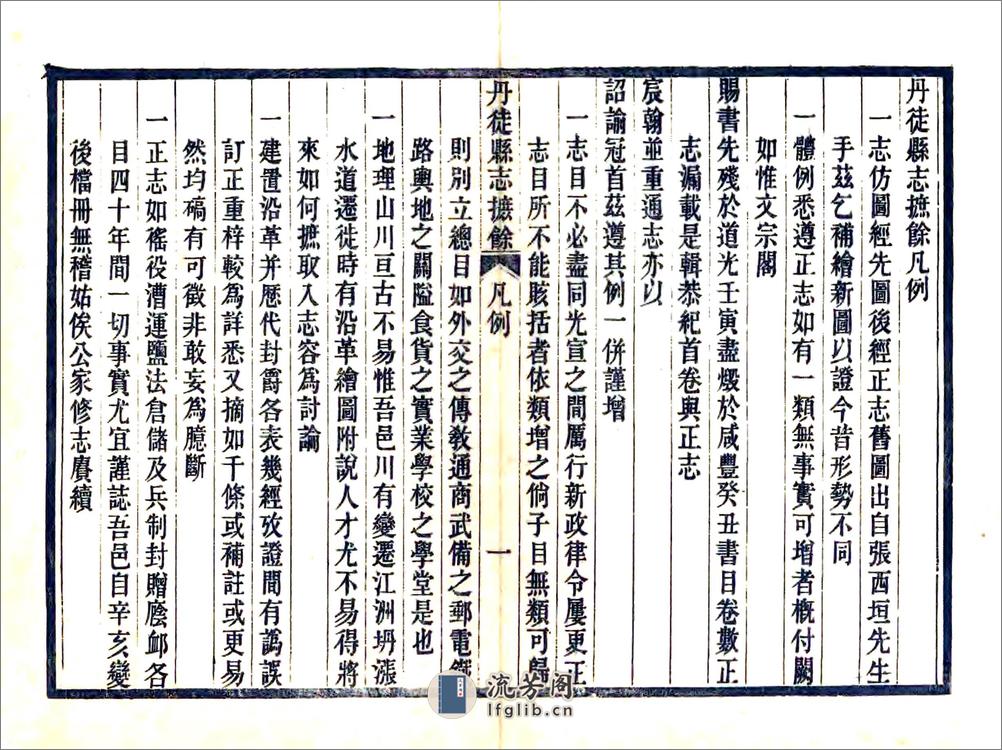 丹徒縣志摭餘凡例
一志仿圖經先圖後經正志舊圖出自張西垣先生
手茲乞補繪新圖以證今昔形勢不同
一體例悉遵正志如有一類無事實可增者概付闕
如惟文宗閣
賜書先殘於道光壬寅盡燬於咸豐癸丑書目卷數正
志漏載是輯恭紀首卷與正志
宸翰並重通志亦以
詔諭冠首茲遵其例一併謹增
一志目不必盡同光宣之間厲行新政律令屢更正
志目所不能賅括者依類增之倘子目無類可歸
丹徒縣志摭餘 凡例 一
則別立總目如外交之傳教通商武備之郵電鐵
路輿地之關隘食貨之實業學校之學堂是也
一地理山川亘古不易惟吾邑川有變遷江洲坍漲
水道遷徙時有沿革繪圖附說人才尤不易得將
來如何摭取入志容為討論
一建置沿革并歷代封爵各表幾經攷證間有譌誤
訂正重梓較為詳悉又摘如干條或補註或更易
然均碻有可徵非敢妄為臆斷
一正志如徭役漕運鹽法倉儲及兵制封贈廕卹各
目四十年間一切事實尤宜謹誌吾邑自辛亥變
後檔冊無稽姑俟公家修志賡續
流芳閣
lfglib.cn